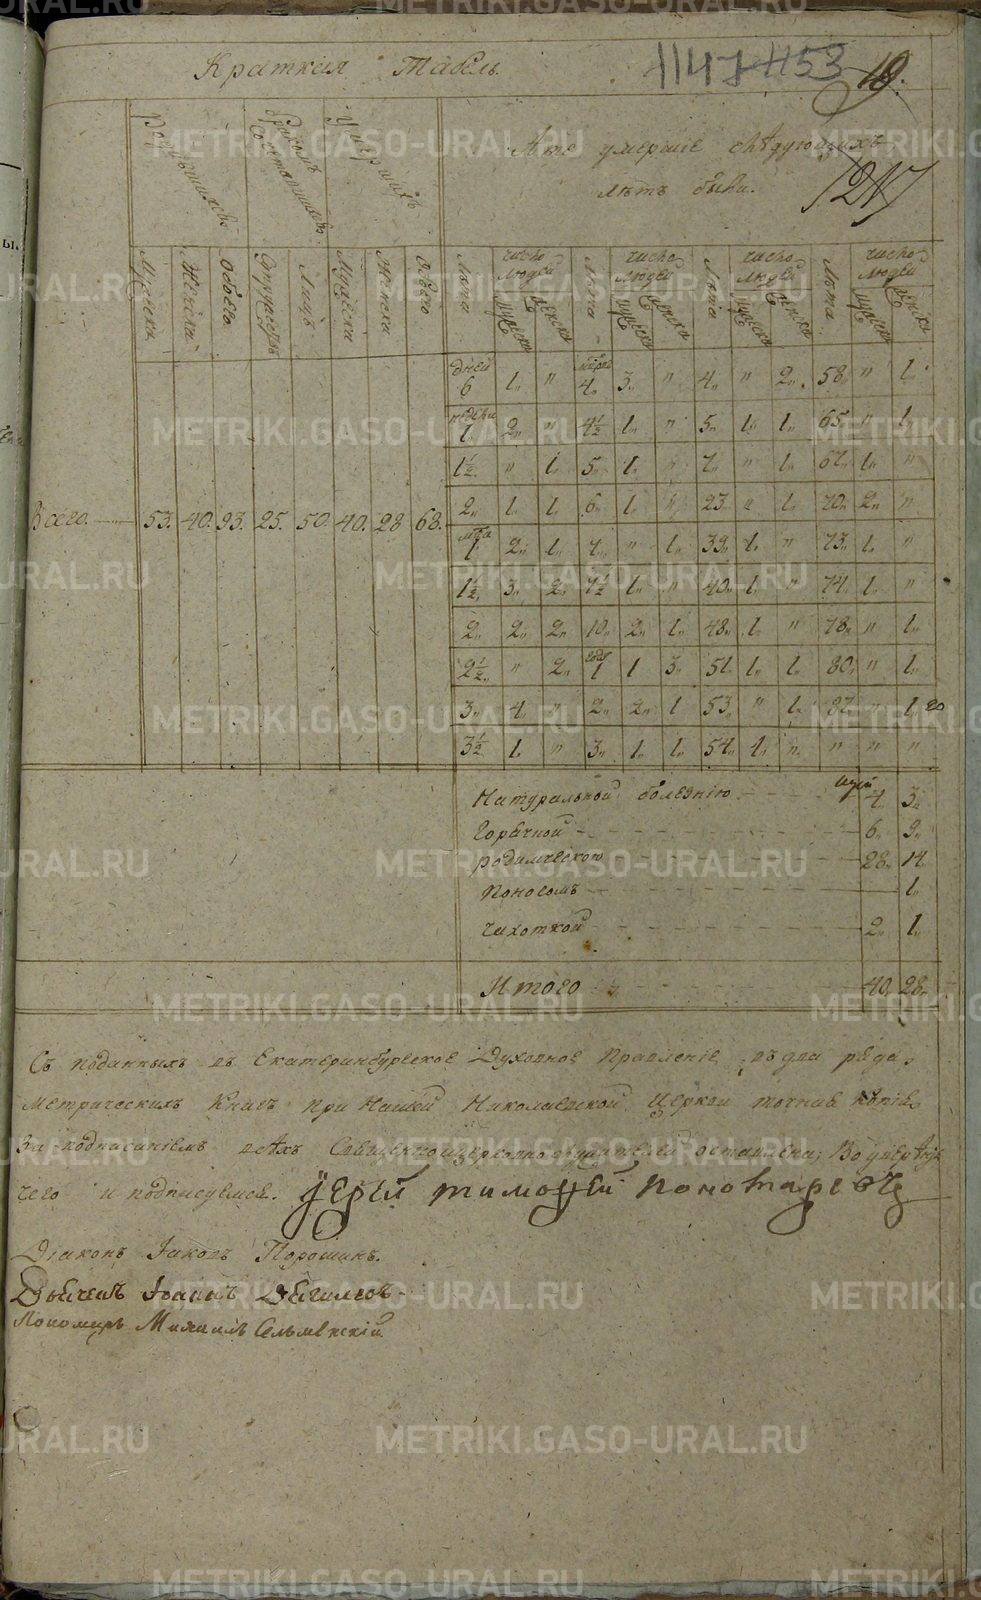 Краткая Табель.
1147 1153 19.
1217
Родившихся
Бракомъ Сочетавшихся
Умершихъ
А те умершіе слѣдующихъ
лѣтъ были.
Мужеска Женска Обоего Супружествъ Лицъ Мужеска Женска Обоего
Лѣта число людей Лѣта число людей Лѣта число людей Лѣта число людей
мужеска женска мужеска женска мужеска женска мужеска женска
дней 6 1 " 4 3 " 4 " 2 58 " 1
недѣли 1 2 " 4½ 1 " 5 1 1 65 " 1
1½ " 1 5 1 " 7 " 1 67 1 "
2 1 1 6 1 " 23 " 1 70 2 "
Всего 53. 40. 93. 25. 50. 40. 28 68.
1 2 1 7 " 1 39 1 " 73 1 "
1½ 3 2 7½ 1 " 40 1 " 74 1 "
2 2 2 10 2 1 48 1 " 78 " 1
2½ " 2 года 1 1 3 51 1 1 80 " 1
3 4 " 2 2 1 53 " 1 87 " 1
3½ 1 " 3 1 1 54 1 " " " "
Натуральной болезнію 4 3
Горячкой 6 9
родимческою 28 14
Поносомъ 1
Чахоткой 2 1
Итого 40 28
Съ поданныхъ въ Екатеринбургское Духовное Правленіе въ два ряда
Метрическихъ Книгъ при Нашей Николаевской Церкви точная копія
За подписаніемъ всѣхъ Священноцерковнослужителей оставлена; Во увѣреніе
чего и подписуемся. Іерей Тимофей Пономаревъ
Діаконъ Іаковъ Порошинъ.
Дьячекъ Іоаннъ
Пономарь Михаилъ
METRIKI.GASO-URAL.RU